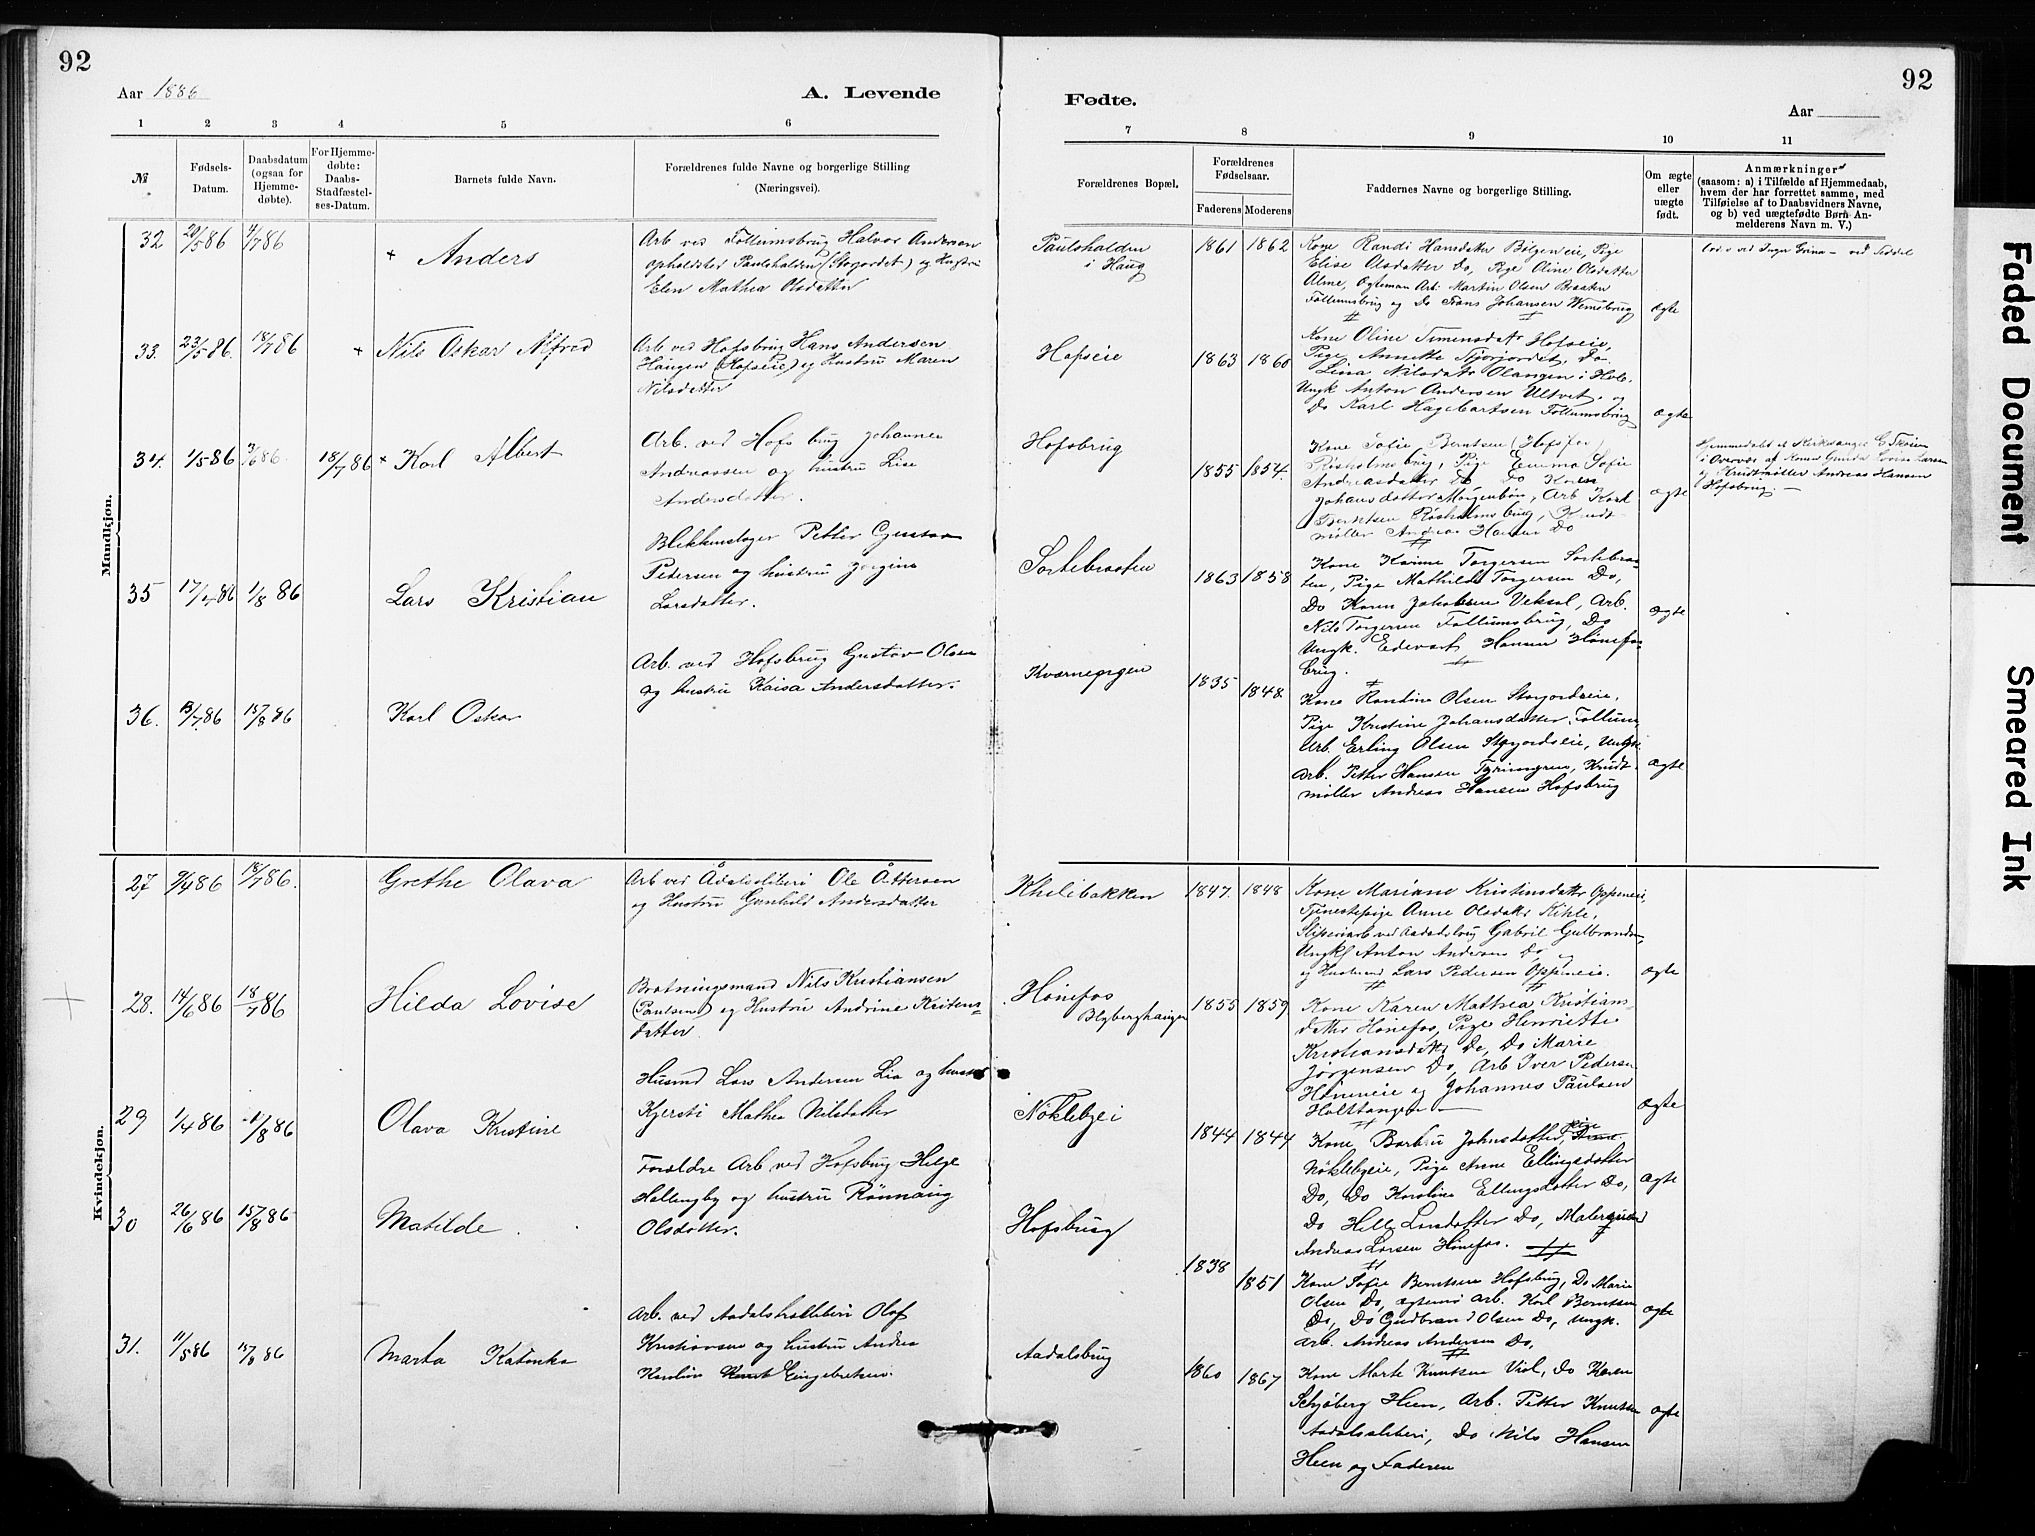 92
92
Aar 1886
A. Levende
Fødte.
Aar
1 2 3 4 5 6 7 8 9 10 11
№
Fødsels-
Datum.
Daabsdatum
(ogsaa for
Hjemme-
døbte).
For Hjemme-
døbte:
Daabs-
Stadfæstel-
ses-Datum.
Barnets fulde Navn.
Forældrenes fulde Navne og borgerlige Stilling
(Næringsvei).
Forældrenes Bopæl.
Forældrenes
Fødselsaar.
Faderens Moderens
Faddernes Navne og borgerlige Stilling.
Om ægte
eller
uægte
født.
Anmærkninger
(saasom: a) i Tilfælde af Hjemmedaab,
hvem der har forrettet samme, med
Tilføielse af to Daabsvidners Navne,
og b) ved uægtefødte Børn An-
melderens Navn m. V.)
Mandkjøn.
32 20/5 86 4/7 86
+ Anders
Arb ved Follumsbrug Halvor Andersen
opholdsted Paulshalden (Storjordet) og Hustru
Elen Mathea Olsdatter
Paulshalden
i Haug
1861 1862
Kone Randi Hansdatter Bølgeneie, Pige
Elise Olsdatter Do, Pige Oline Olsdatter
Alme, Ogteman Arb. Martin Olsen Braaten
Follumsbrug og Do Frans Johansen Wemsbrug
ægte
33. 23/5 86. 18/7 86
+ Nils Oskar Alfred
Arb ved Hofsbrug Hans Andersen
Haugen (Hofseie) og Hustru Maren
Nilsdatter
Hofseie
1863 1860
Kone Oline Simensdatr Hofseie,
Pige Annette Storjordet, Do
Lina Nilsdatr Olangen i Hole.
Ungk Anton Andersen Ultvet, og
Do Karl Hagebartsen Follumsbrug
ægte
34. 1/5 86 3/6 86. 18/7 86
+ Karl Albert
Arb. ved Hofsbrug Johannes
Andreassen og hustru Lise
Andersdatter.
Hofsbrug
1855 1854.
Kone Sofie Berntsen (Hofsfos)
Risholmsbrug, Pige Emma Sofie
Andreasdatter Do Do Karen
Johansdatter Morgenbøn, Arb Karl
Berntsen Risholmsbrug, Krudt-
møller Andreas Hansen Do
ægte
Hjemmedøbt af Kirkesanger
i Overvær af Konen Gunda Lovise Larsen
og Krudtmøller Andreas Hansen
Hofsbrug. —
35 17/4 86 1/8 86
Lars Kristian
Blikkenslager Petter Gustav
Pedersen og hustru Jorgine
Larsdatter.
Sortebraaten
1863 1858
Kone Karine Torgersen Sortebraa-
ten, Pige Mathilde Torgersen Do,
Do Karen Jakobsen Veksal, Arb.
Nils Torgersen Follumsbrug, Do
Ungk. Edevart Hansen Hønefos-
brug.
ægte
36. 13/7 86 15/8 86
Karl Oskar
Arb. ved Hofsbrug Gustav Olsen
og hustru Kaisa Andersdatter.
Kværnepigen
1835 1848.
Kone Randine Olsen Storjordseie,
Pige Kristine Johansdatter Follum,
Arb. Erling Olsen Storjordseie, Ungk.
Arb. Petter Hansen Tyrimyren, Krudt-
møller Andreas Hansen Hofsbrug
ægte
Kvindekjøn.
27 9/4 86 18/7 86.
Grethe Olava
Arb ved Ådalssliberi Ole Åttersen
og Hustru Gunhild Andersdatter
Khilebakken
1847. 1848
Kone Mariane Kristinsdatr Oppeneie,
Tjenestepige Anne Olsdatr Kihle,
Sliperiarb ved Aadalsbrug Gabriel Gulbrandsen,
Ungkl Anton Andersen Do, og
og Husmand Lars Pedersen Oppeneie.
ægte
28. 14/6 86 18/7 86
Hilda Lovise
Brotningsmand Nils Kristiansen
(Paulsen) og Hustru Andrine Kristens-
datter
Hønefos
Blybergshaugen
1855 1859
Kone Karen Mathea Kristians-
datr Hønefos, Pige Henriette
Kristiansdatr Do, Do Marie
Jørgensen Do, Arb Iver Pedersen
Høneneie og Johannes Paulsen
Holttangen —
ægte
29 1/4 86 1/8 86
Olava Kristine
Husmd Lars Andersen Lia og hustru
Kjersti Mathea Nilsdatter
Nøklebyei
1844 1844
Kone Barbru Johnsdatter, Pige
Nøklebyeie, Pige Anne Ellingsdatter
Do, Do Karoline Ellingsdatter Do,
Do Helle Larsdatter Do, Malersvend
Andreas Larsen Hønefos.
ægte
30 26/6 86 15/8 86
Matilde.
Forældre Arb ved Hofsbrug Helge
Hallingby og hustru Rønnaug
Olsdatter.
Hofsbrug
1838 1851
Kone Sofie Berntsen Hofsbrug, Do Marie
Olsen Do, ægtemd Arb. Karl Berntsen
Do, Do Gudbrand Olsen Do, Ungk.
Arb. Andreas Andersen Do,
ægte
31. 11/5 86 15/8 86
Marta Katinka
Arb. ved Aadalstræsliberi Olaf
Kristiansen og hustru Andrea
Karoline Engebretsen.
Aadalsbrug
1860 1867
Kone Marte Knutsen Viul, Do Karen
Schjøberg Heen, Arb. Petter Knutsen
Aadalssliberi, Do Nils Hansen
Heen og Faderen
ægte
Faded Document
Smeared Ink